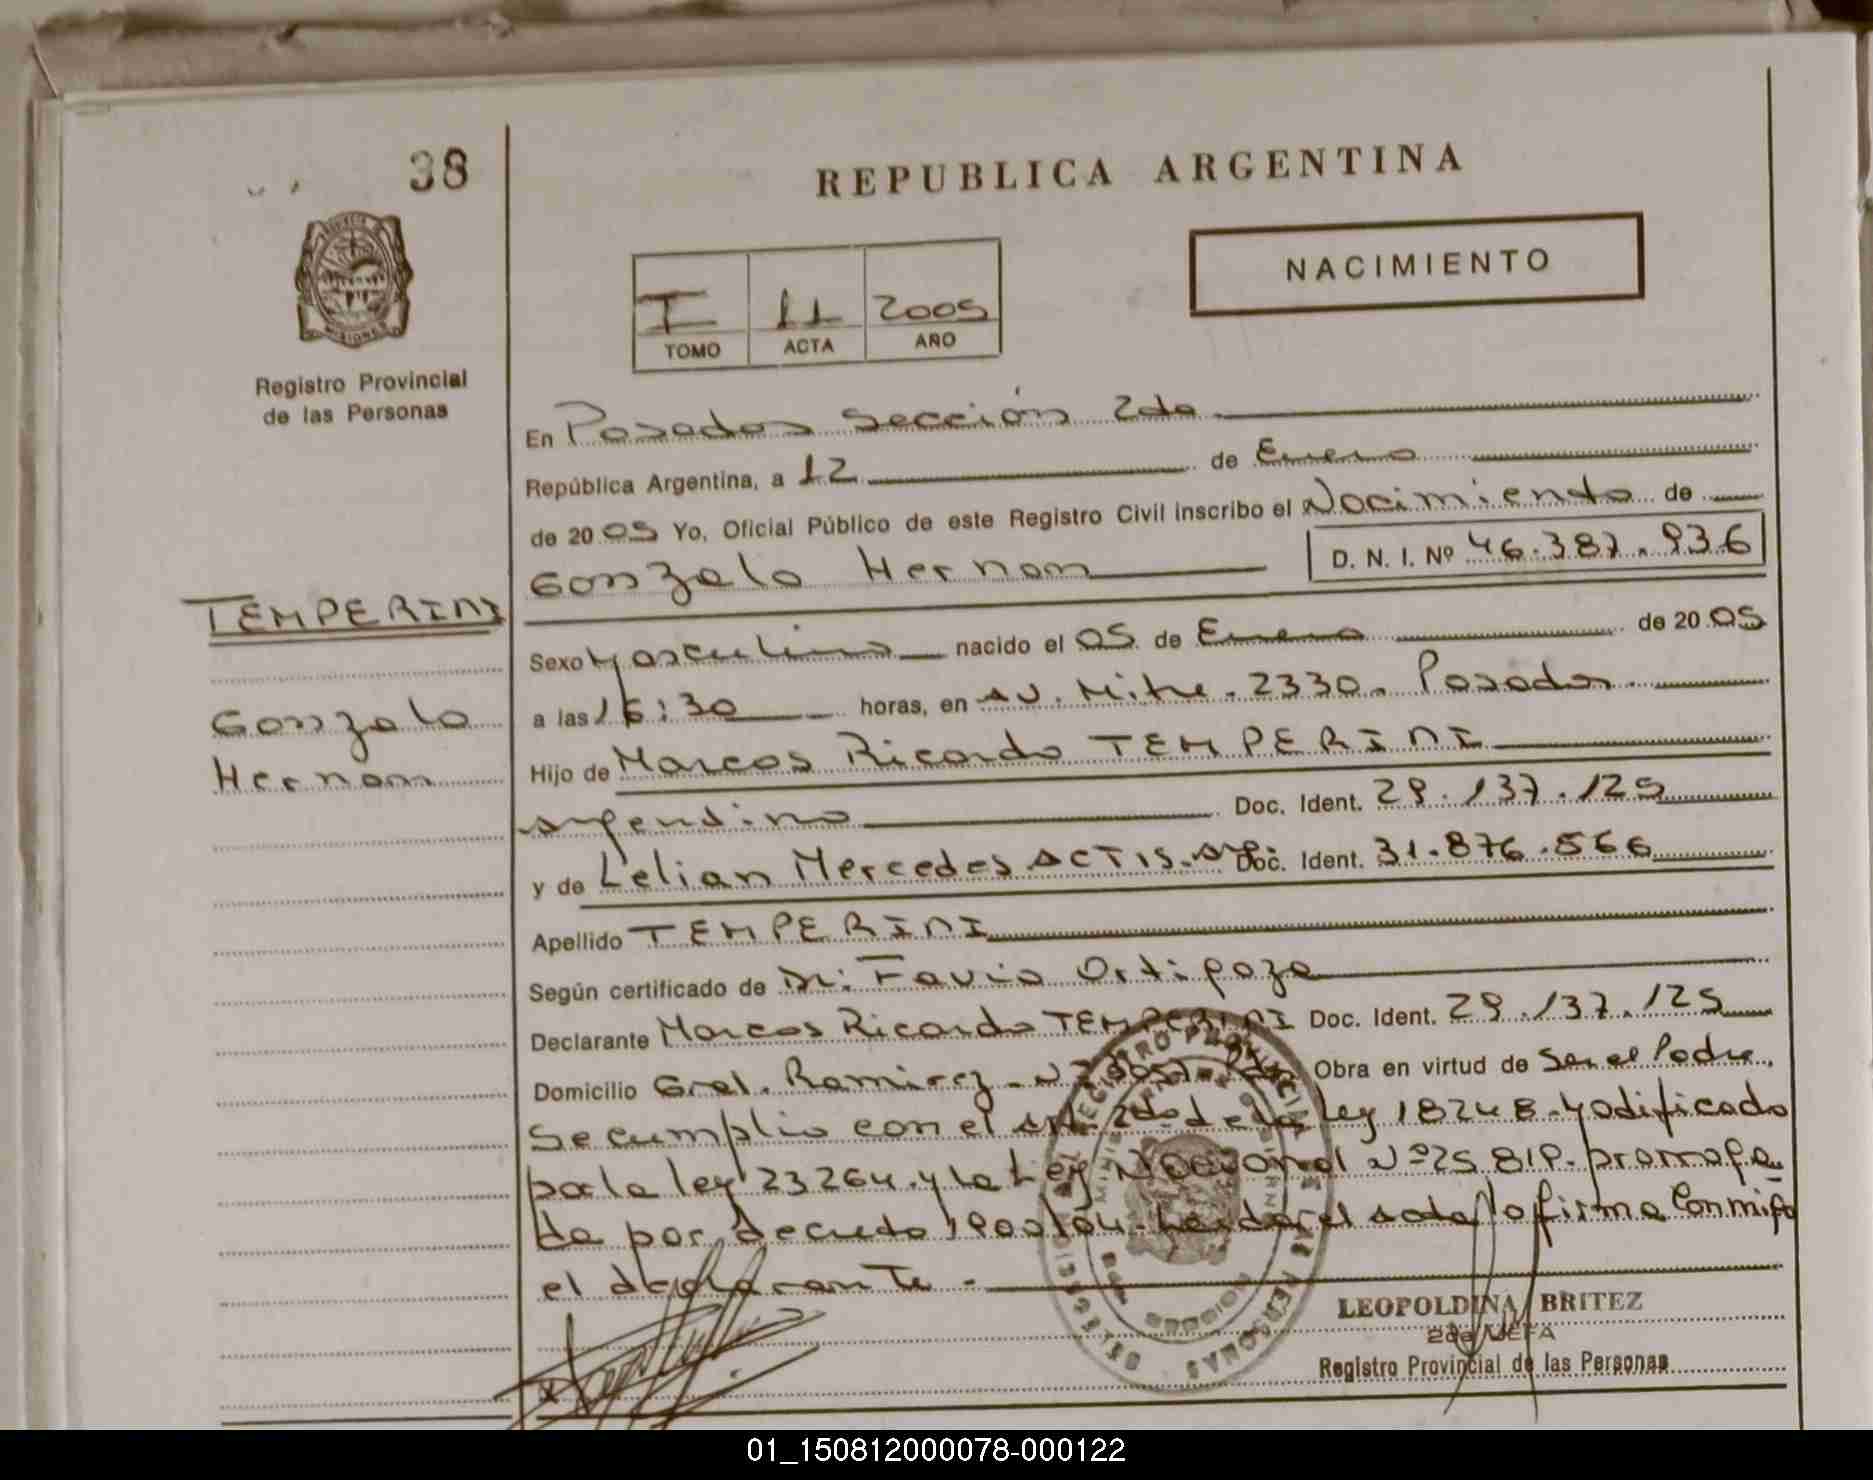 38
REPUBLICA ARGENTINA
NACIMIENTO
I 11 2005
TOMO ACTA AÑO
MISIONES
Registro Provincial
de las Personas
En Posadas Sección 2da
República Argentina, a 12 de Enero
de 2005 Yo, Oficial Público de este Registro Civil inscribo el Nacimiento de
Gonzalo Hernan D. N. I. Nº 46.387.936
TEMPERINI
Gonzalo
Hernan
Sexo Masculino nacido el 05 de Enero de 2005
a las 16:30 horas, en Av. Mitre. 2330. Posadas
Hijo de Marcos Ricardo TEMPERINI
argentino Doc. Ident. 29.137.125
y de Lelian Mercedes ACTIS. arg. Doc. Ident. 31.876.566
Apellido TEMPERINI
Según certificado de Dr. Favio Ortigoza
Declarante Marcos Ricardo TEMPERINI Doc. Ident. 29.137.125
Domicilio Gral. Ramirez Obra en virtud de Ser el Padre,
Se cumplio con el art. 2do de la Ley 18248. Modificado
por la ley 23264. y la Ley Nacional Nº 25819. prorroga
da por decreto 1900/04. Leida el acta la firma Conmigo
el declarante.
LEOPOLDINA BRITEZ
2da JEFA
Registro Provincial de las Personas
01_150812000078-000122